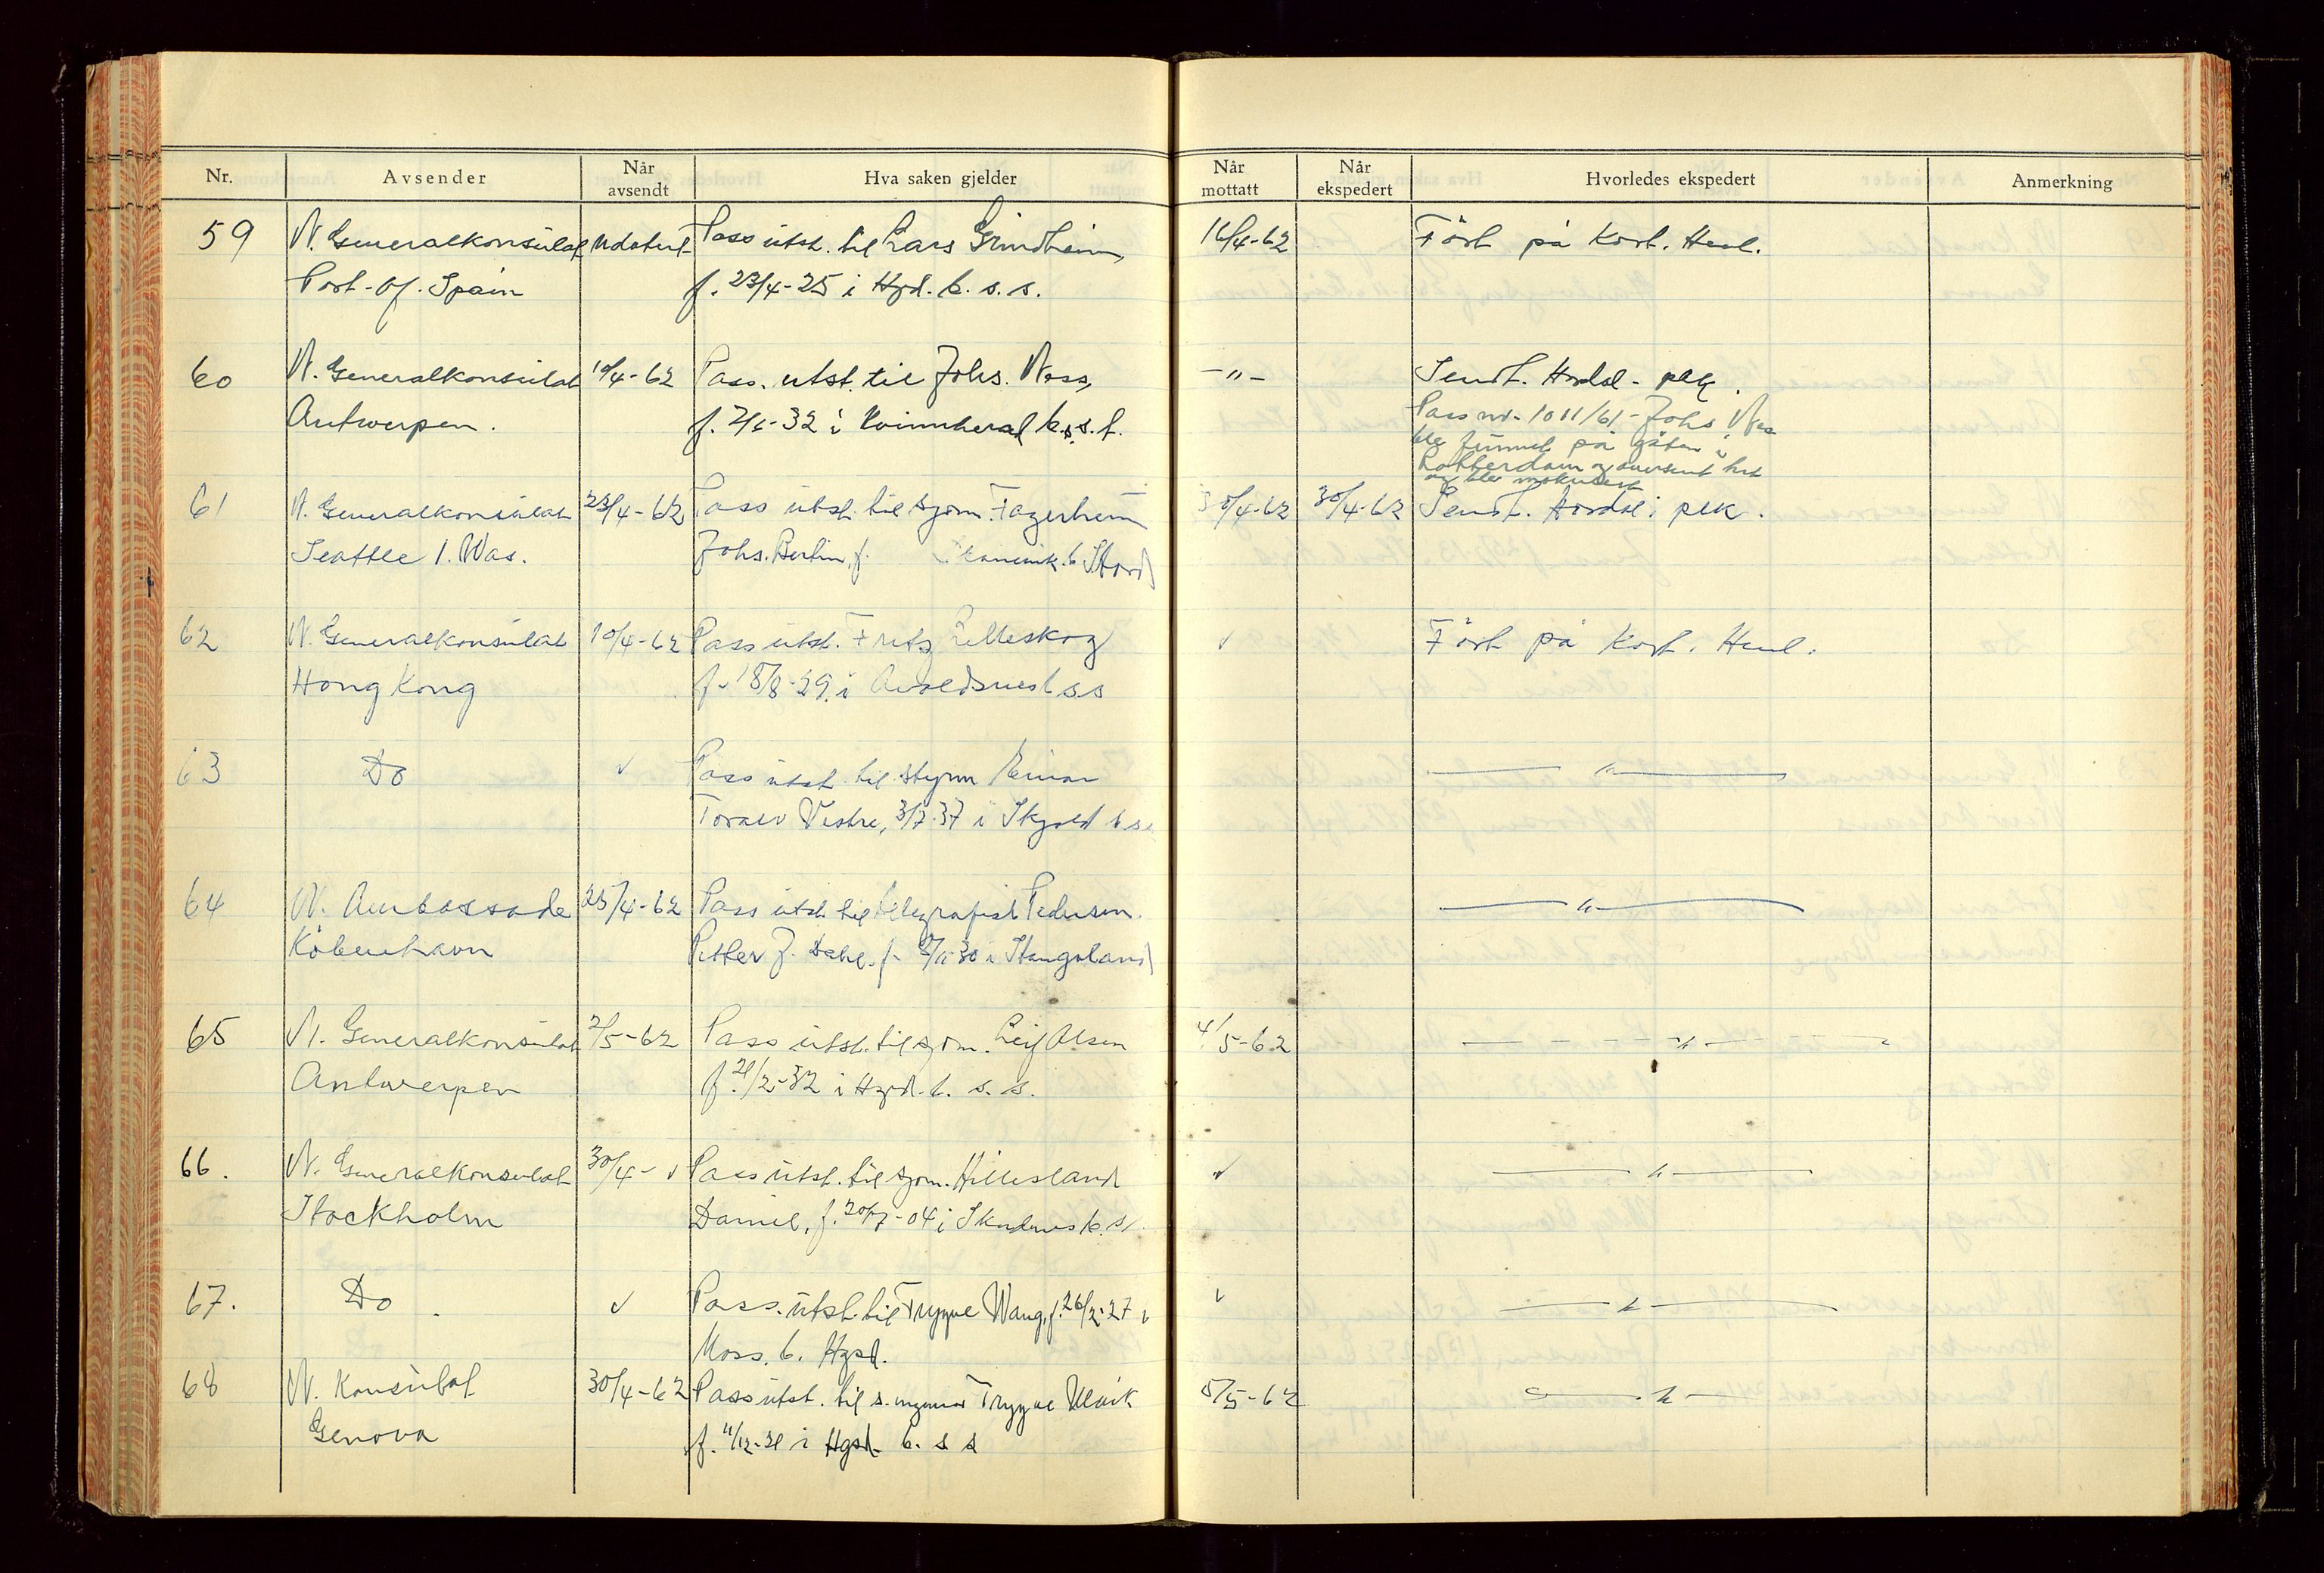 Nr. Avsender Når avsendt Hva saken gjelder Når mottatt Når ekspedert Hvorledes ekspedert Anmerkning
59 N. Generalkonsulat udatert Pass utst. til Lars Grindheim, 16/4-62 Ført på kort. Henl.
Port-of-Spain f. 23/4-25 i Hgd. b. s. s.
60 N. Generalkonsulat 10/4-62 Pass. utst. til Johs. Næss, -"- Sendt. Hordal. plk.
Antwerpen. f. 2/6-32 i Kvinnherad b. s. s.
Pass nr. 1011/61 - Johs Næs
ble funnet på gaten i
Rotterdam og oversent hit
og ble makulert
61 N. Generalkonsulat 23/4-62 Pass utst. til sjøm. Fagerheim 30/4-62 30/4-62 Sendt. Hordal. plk.
Seattle 1. Was. Johs. Berlin, f. b. Stord
62 N. Generalkonsulat 10/4-62 Pass utst. Fritz Lilleskog ✓ Ført på kort. Henl.
Hong Kong f. 18/8-29. i Avaldsnes b s s
63 Do ✓ Pass utst. til styrm Einar — " —
Toralv Vestre, 3/7-37 i Skjold b s s
64 N. Ambassade 25/4-62 Pass utst. til telegrafist Pedersen — " —
København Petter J. Dahl. f. 30 i Stangaland
65 N. Generalkonsulat 2/5-62 Pass utst. til sjøm. Leif Olsen 4/5-62 — " —
Antwerpen f. 21/2-32 i Hgd. b. s. s.
66. N. Generalkonsulat 30/4- ✓ Pass utst. til sjøm. Hillesland ✓ — " —
Stockholm Daniel, f. 20/7-04 i Skudenes b. s.
67. Do. ✓ Pass. utst. til Trygve Wang, f. 26/2-27 i ✓ — " —
Moss. b. Hgsd.
68 N. Konsulat 30/4-62 Pass utst. til s. Trygve Ulvik 5/5-62 — " —
Genova f. 11/12-31 i Hgsd. b. s s